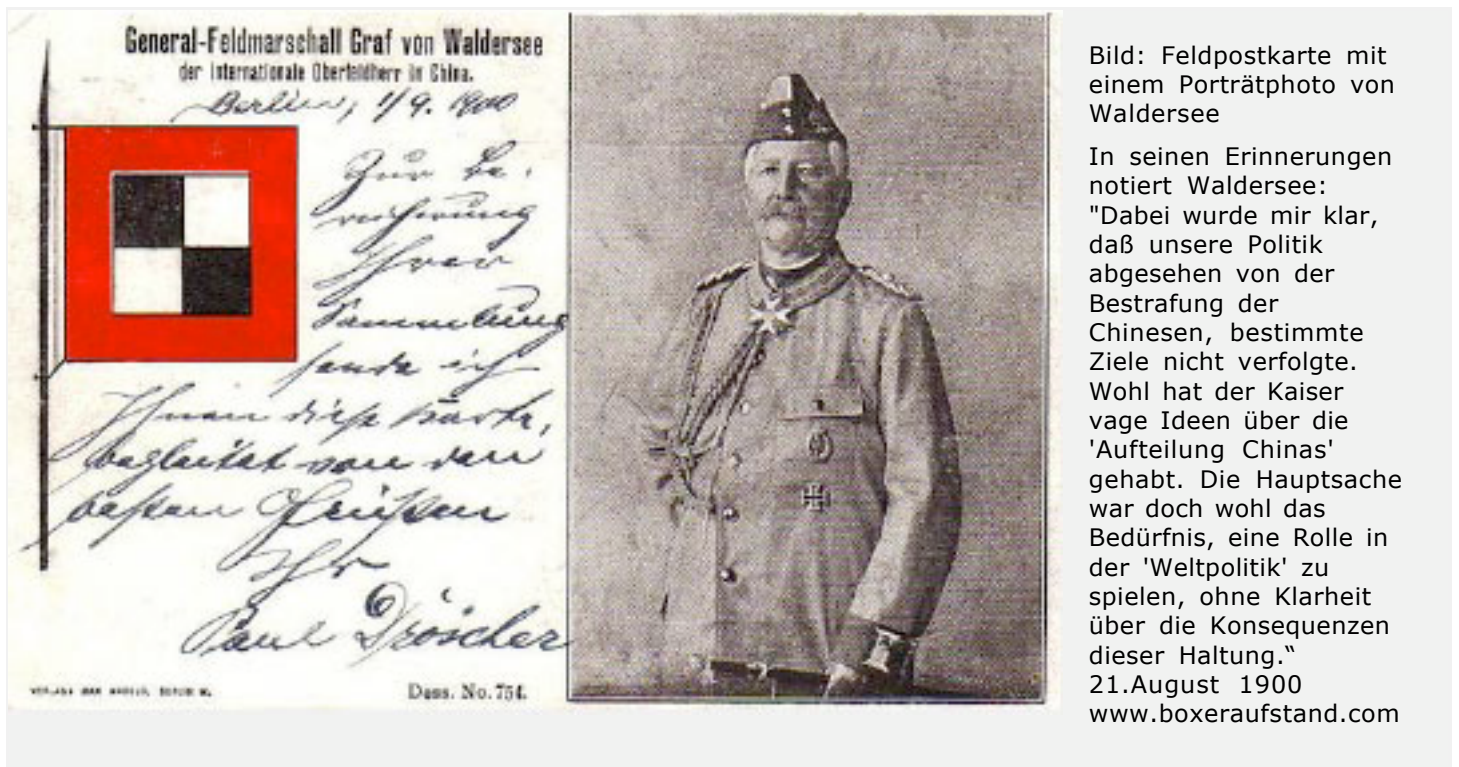 General-Feldmarschall Graf von Waldersee
der internationale Oberfeldherr in China.
Berlin, 1/9. 1900
Zur Be-
reicherung
Ihrer
Sammlung
sende ich
Ihnen diese Karte,
begleitet von den
besten Grüßen
Ihr
Paul Dröscher
BERLIN W.
Dess. No. 754.
Bild: Feldpostkarte mit
einem Porträtphoto von
Waldersee
In seinen Erinnerungen
notiert Waldersee:
"Dabei wurde mir klar,
daß unsere Politik
abgesehen von der
Bestrafung der
Chinesen, bestimmte
Ziele nicht verfolgte.
Wohl hat der Kaiser
vage Ideen über die
'Aufteilung Chinas'
gehabt. Die Hauptsache
war doch wohl das
Bedürfnis, eine Rolle in
der 'Weltpolitik' zu
spielen, ohne Klarheit
über die Konsequenzen
dieser Haltung.“
21.August 1900
www.boxeraufstand.com